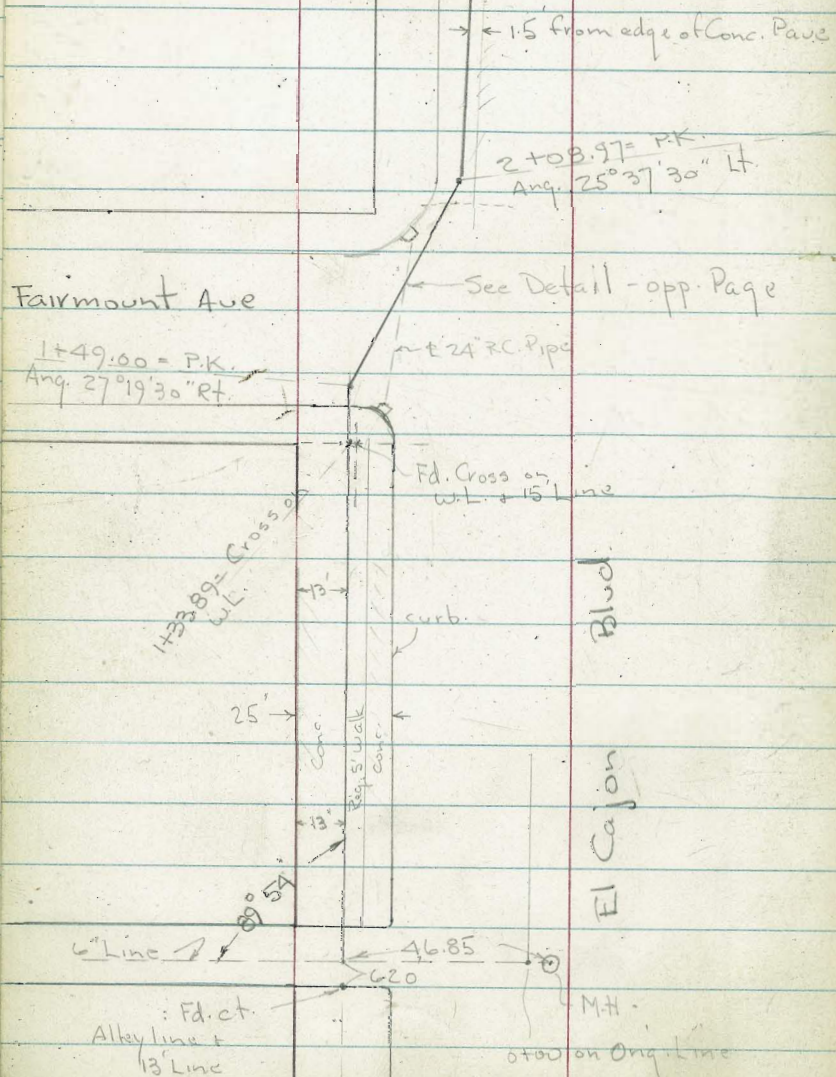 1.5' from edge of Conc. Pave
2+08.97= P.K.
Ang. 25°37'30" Lt.
See Detail - opp. Page
Fairmount Ave
℄ 24" R.C. Pipe
1+49.00= P.K.
Ang. 27°19'30" Rt.
Fd. Cross on
W.L. + 15' Line
1+33.89= Cross on
W.L.
13'
curb.
Blvd.
25'
Conc.
Reg. 5' Walk
Conc.
13'
El Cajon
89° 54'
6" Line
46.85
6.20
Fd. ct.
Alley line +
13' Line
M.H.
0+00 on Orig. Line